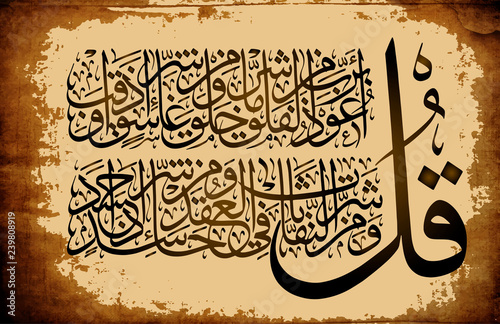 قُل
أعوذ برب الفلق من شر ما خلق ومن شر غاسق إذا وقب
ومن شر النفاثات في العقد ومن شر حاسد إذا حسد
239808919
Adobe Stock